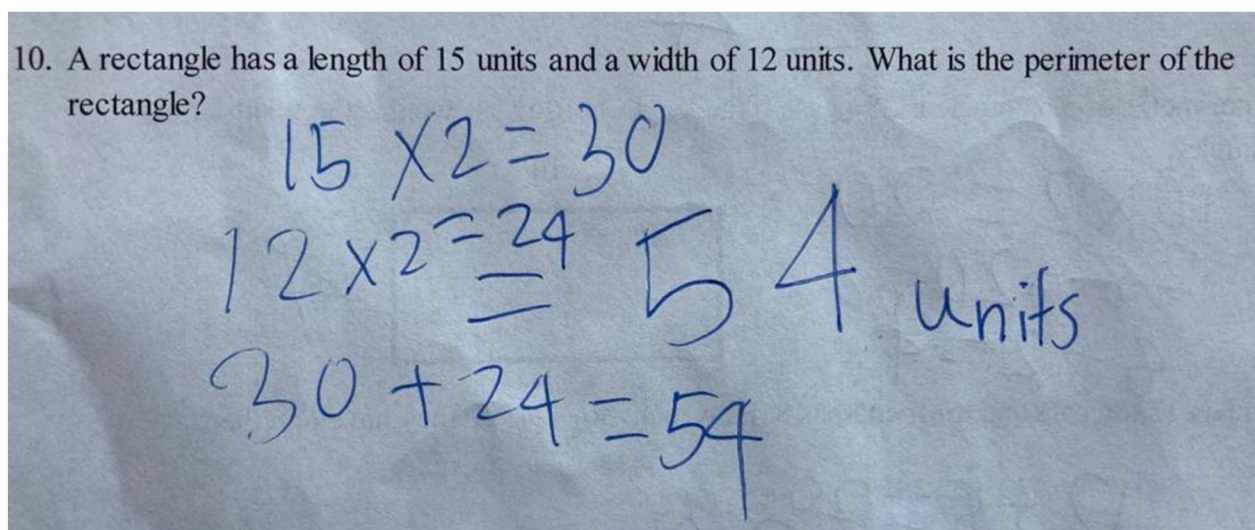 10. A rectangle has a length of 15 units and a width of 12 units. What is the perimeter of the
rectangle?
15 x 2 = 30
12 x 2 = 24
= 54 units
30 + 24 = 54